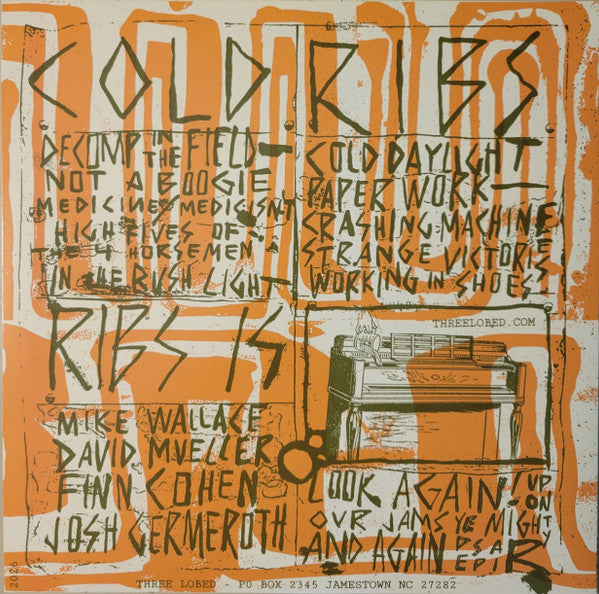 COLD RIBS
DECOMP IN THE FIELD—
NOT A BOOGIE
HIGH FIVES OF
THE 4 HORSEMEN
IN THE RUSH LIGHT
COLD DAYLIGHT
PAPER WORK—
CRASHING MACHINE
STRANGE VICTORIES
WORKING IN SHOES
RIBS IS
MIKE WALLACE
DAVID MUELLER
FINN COHEN
JOSH GERMEROTH
THREELOBED.COM
LOOK AGAIN! UPON
OUR JAMS YE MIGHTY
AND AGAIN DESPAIR
2026
THREE LOBED - PO BOX 2345 JAMESTOWN NC 27282